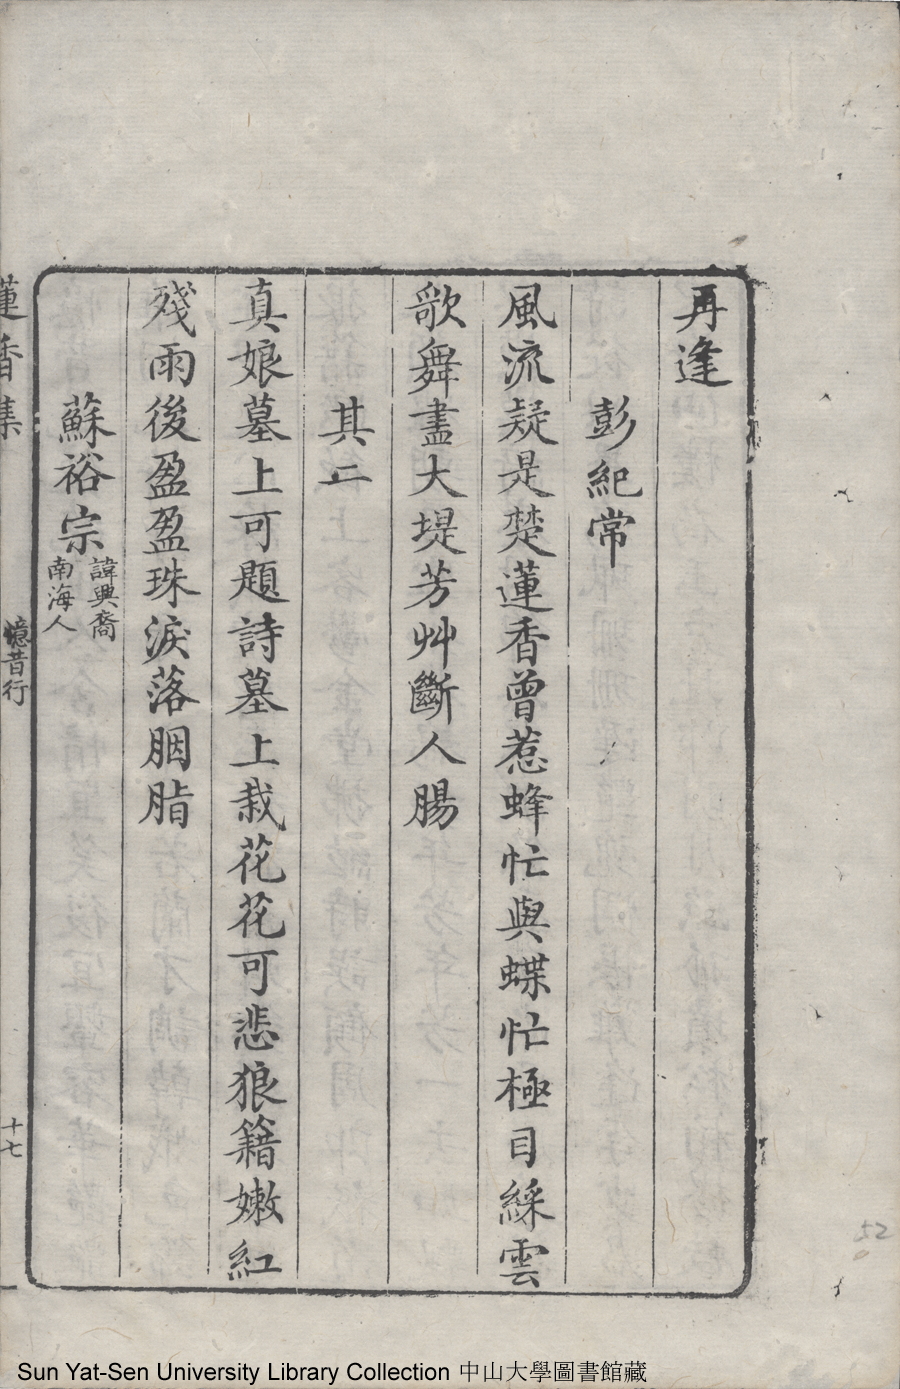 再逢
彭紀常
風流疑是楚蓮香曾惹蜂忙與蝶忙極目綵雲
歌舞盡大堤芳艸斷人腸
其二
真娘墓上可題詩墓上栽花花可悲狼籍嫩紅
殘雨後盈盈珠淚落胭脂
蘇裕宗
諱興裔
南海人
蓮香集
憶昔行
十七
52
Sun Yat-Sen University Library Collection 中山大學圖書館藏